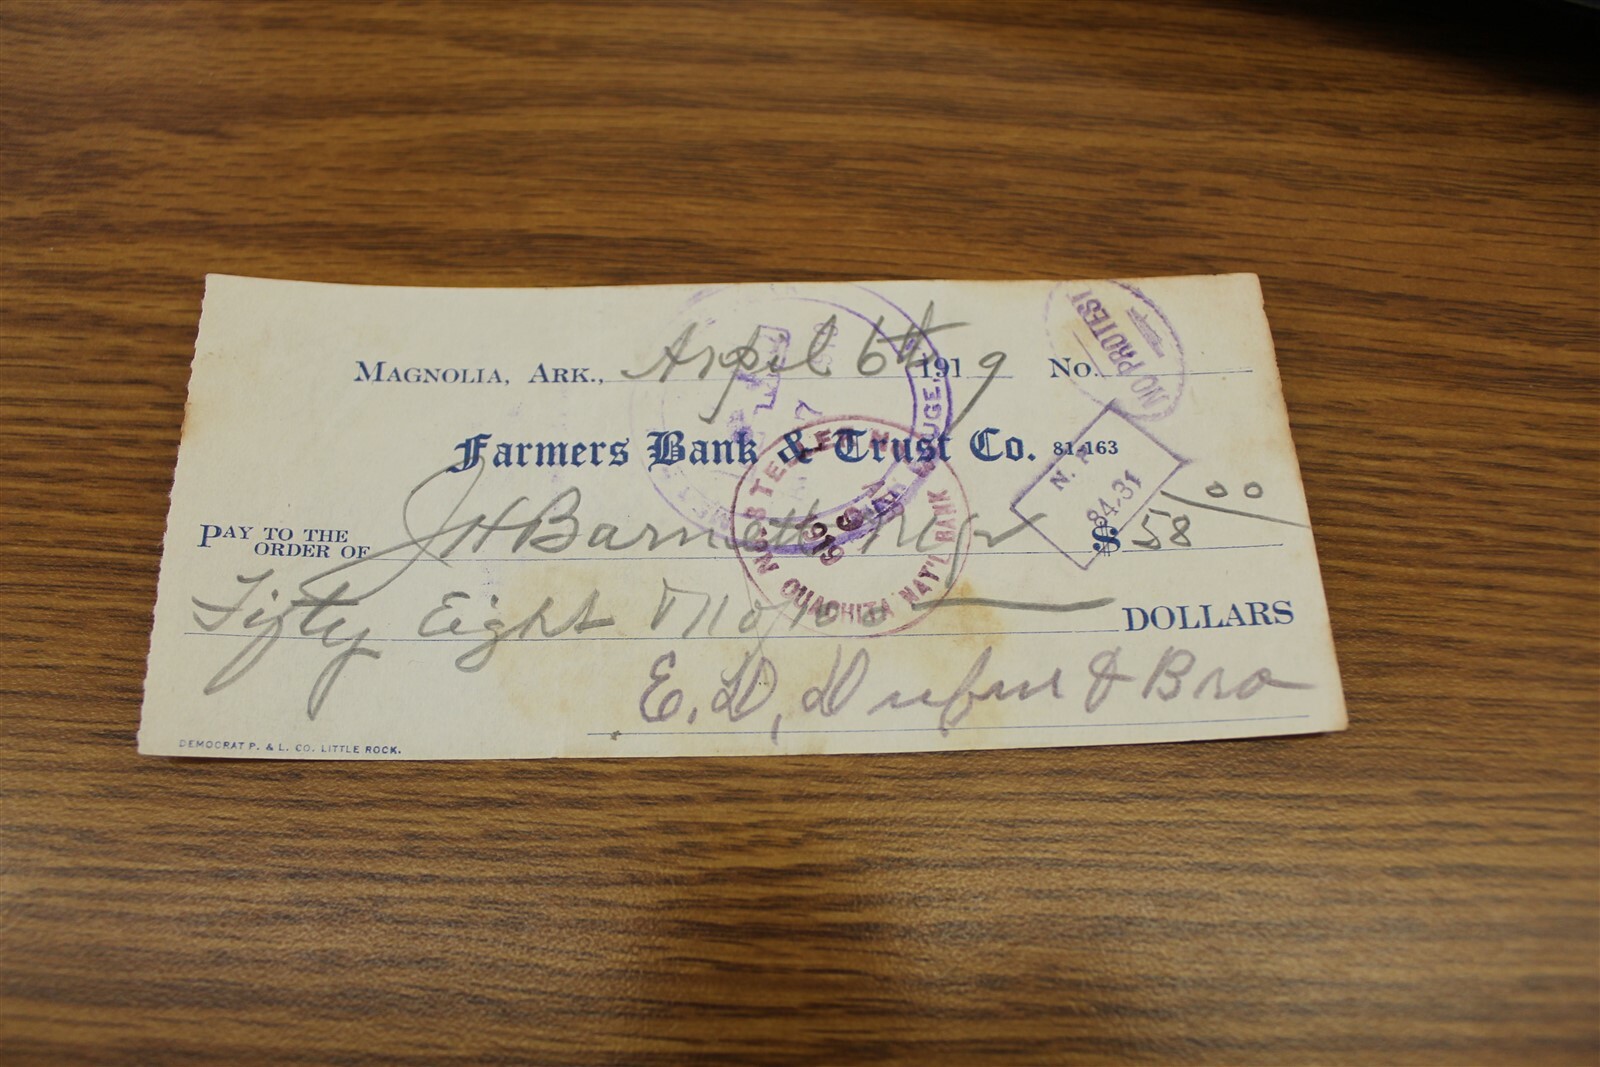 MAGNOLIA, ARK., April 6th 1919 No.
NO PROTEST
Farmers Bank & Trust Co. 81-163
N. P.
84-31
PAY TO THE ORDER OF J H Barnett Mgr $ 58 00
Fifty Eight no/100 DOLLARS
OUACHITA NAT'L BANK
1919
E. D. & Bro
DEMOCRAT P. & L. CO. LITTLE ROCK.